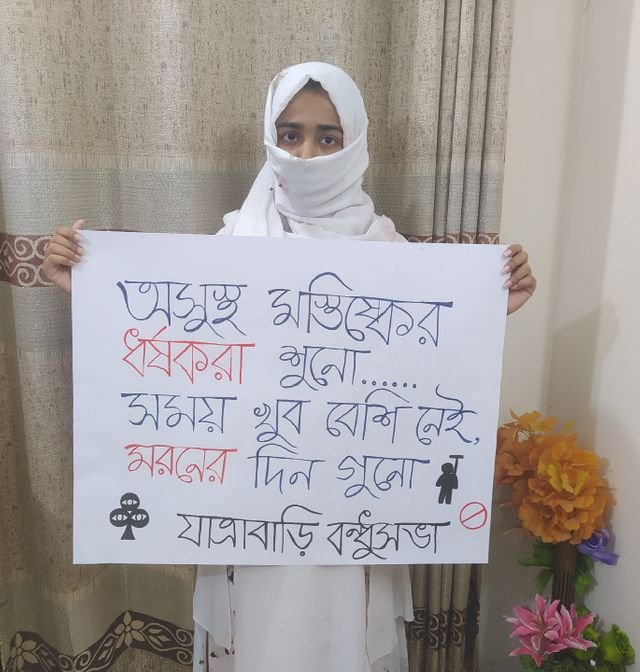 অসুস্থ মস্তিষ্কের
ধর্ষকরা শুনো......
সময় খুব বেশি নেই,
মরনের দিন গুনো
যাত্রাবাড়ি বন্ধুসভা